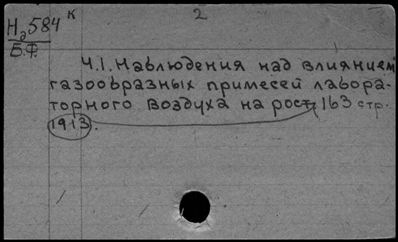 Н2584 к 2
Б.Ф.
Ч.1. Наблюдения над влиянием
газообразных примесей лабора-
торного воздуха на рост, 163 стр.
1913.